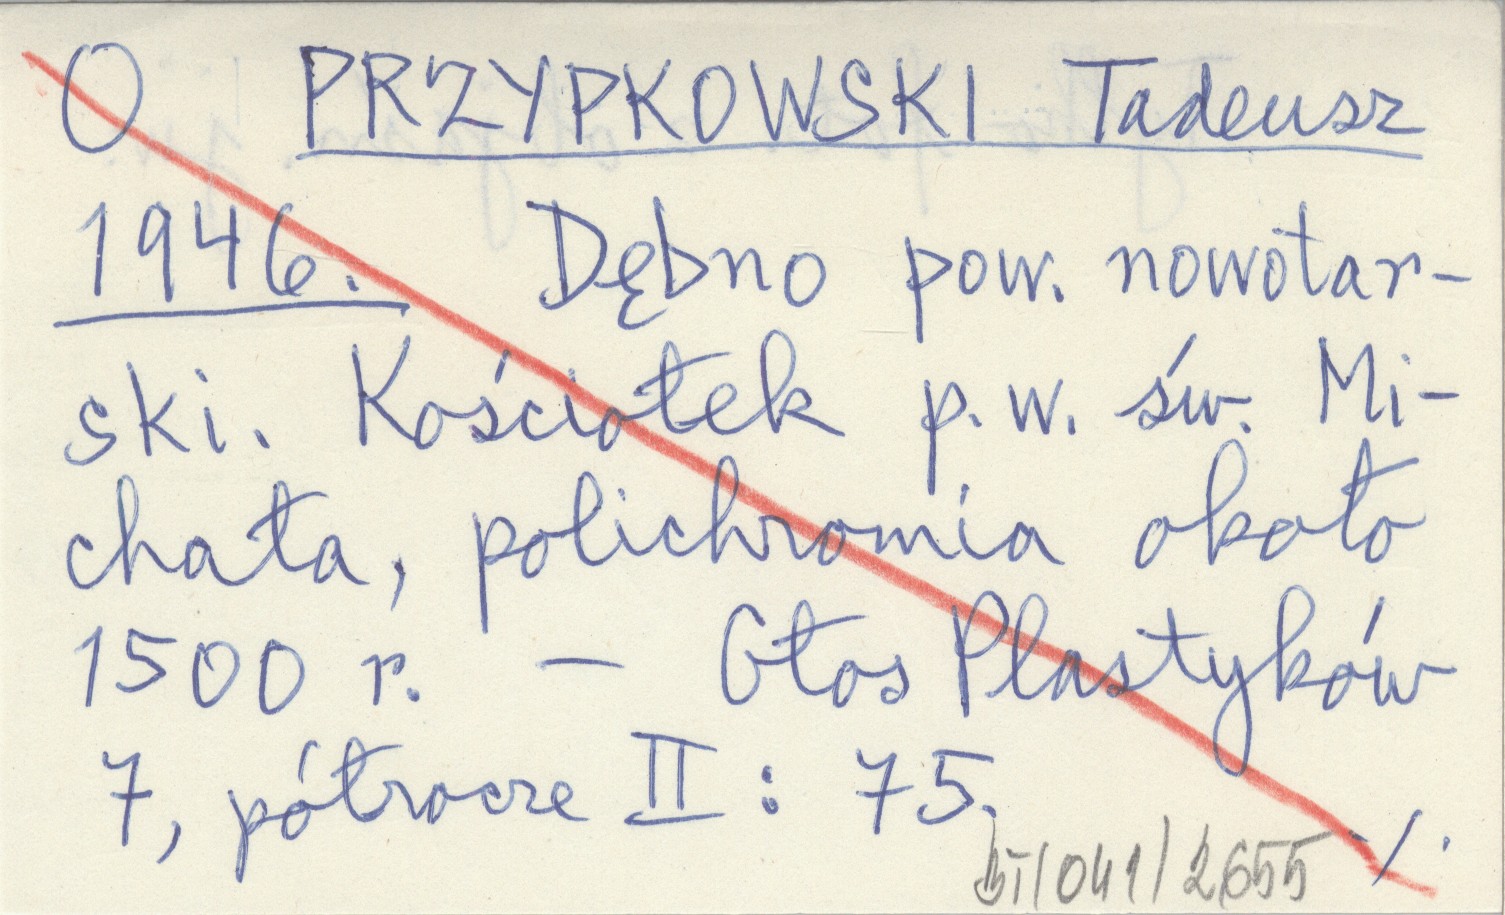 O PRZYPKOWSKI Tadeusz
1946. Dębno pow. nowotar-
ski. Kościołek p.w. św. Mi-
chała, polichromia około
1500 r. – Głos Plastyków
7, półrocze II : 75.
./.
BT/041/2655